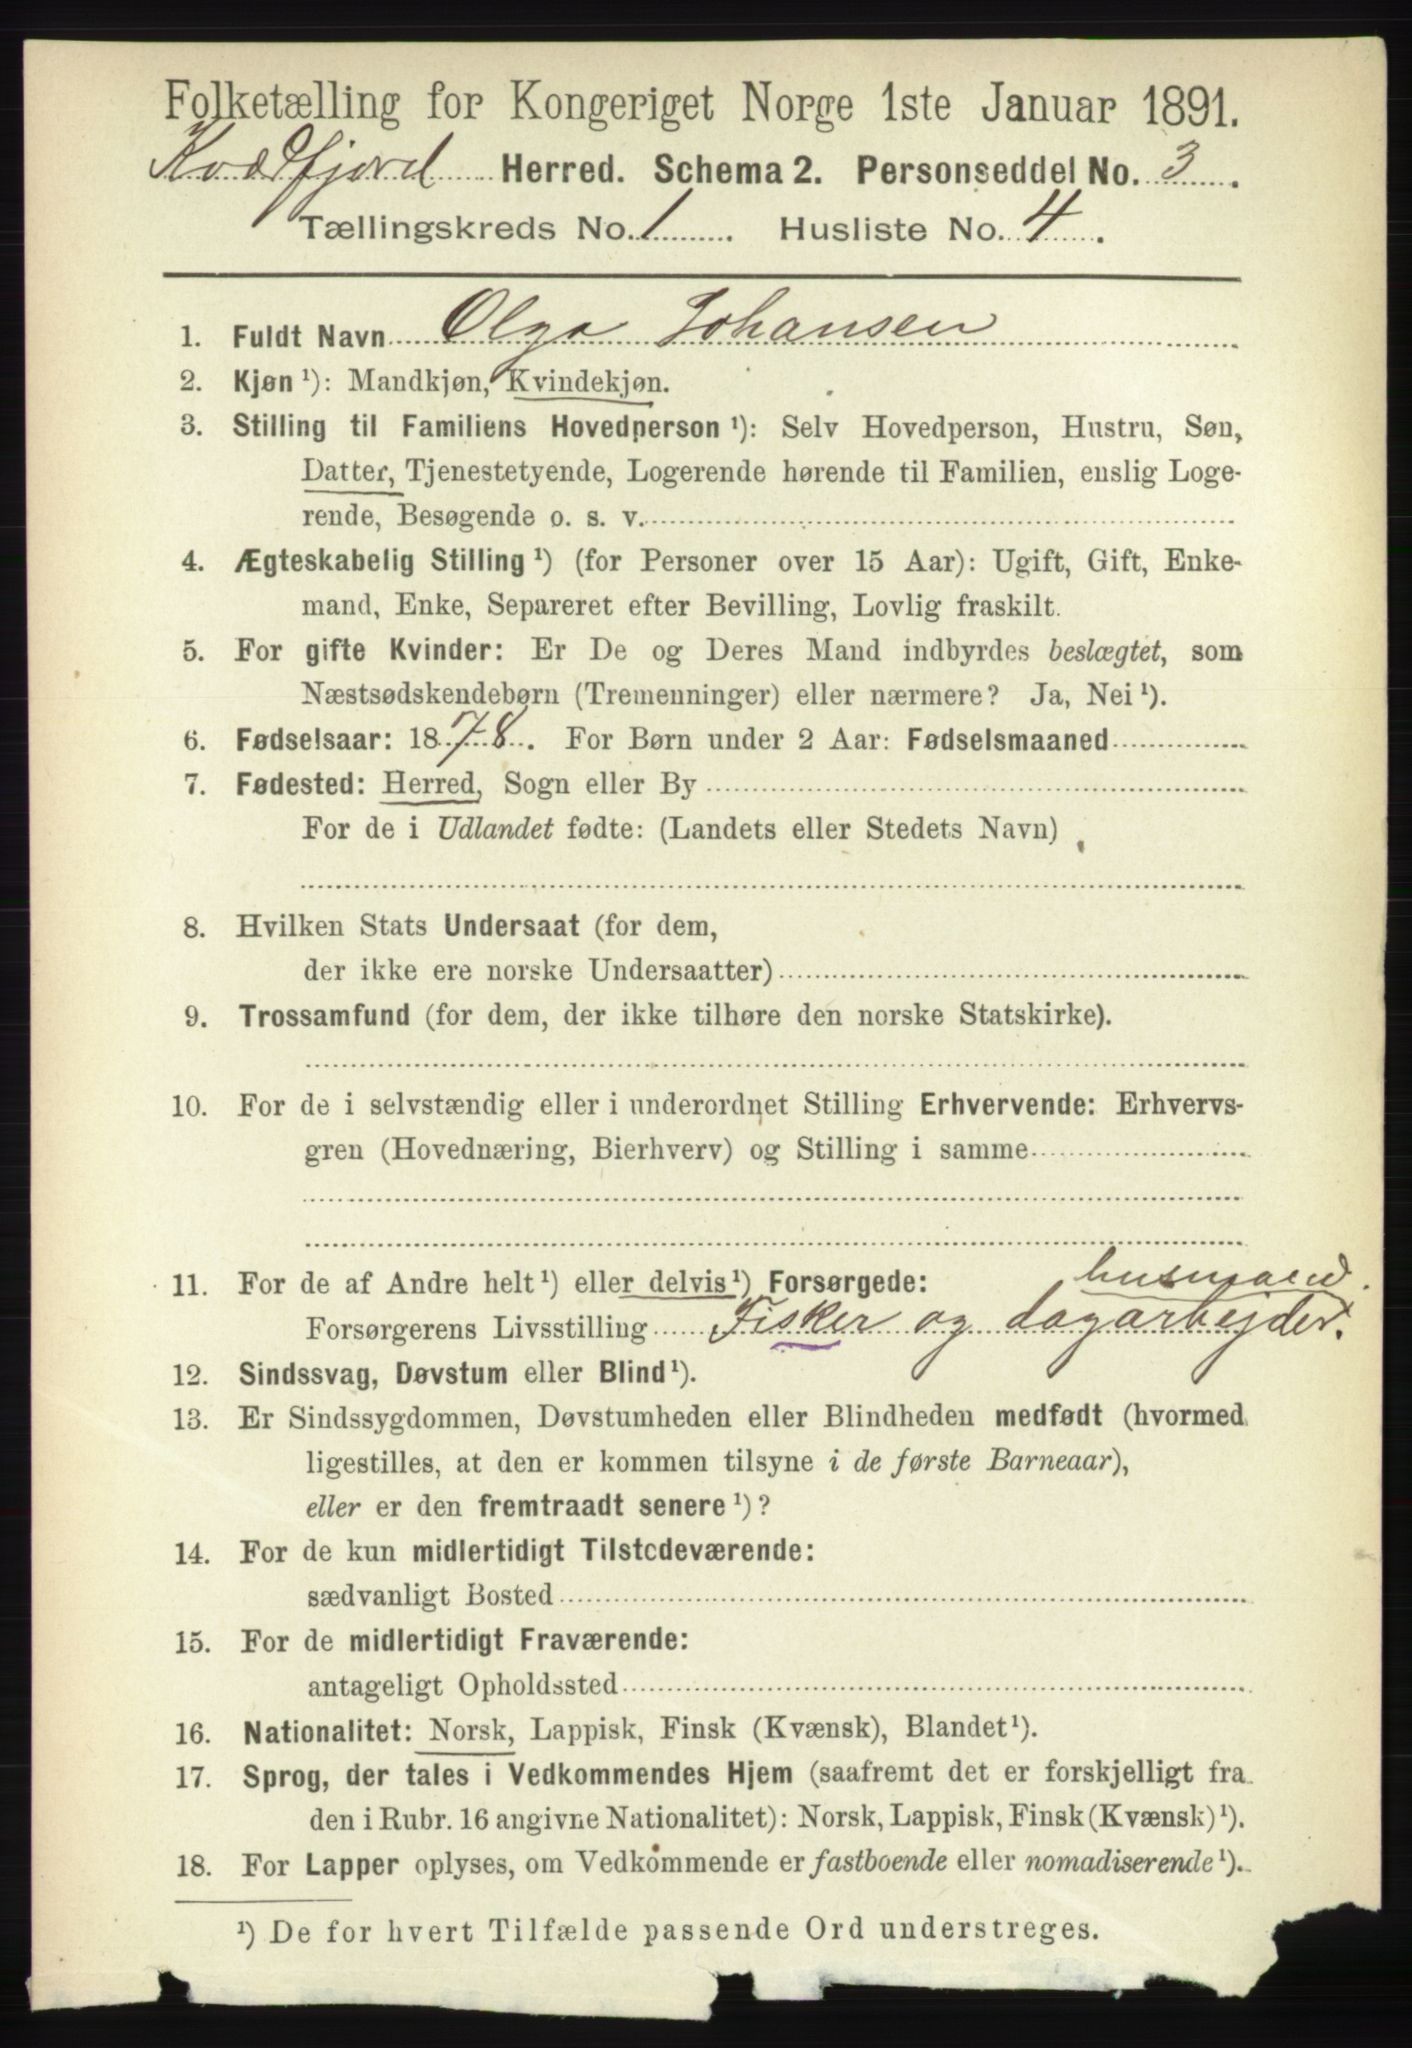 Folketælling for Kongeriget Norge 1ste Januar 1891.
Kvædfjord Herred. Schema 2. Personseddel No. 3.
Tællingskreds No. 1. Husliste No. 4.
1. Fuldt Navn Olga Johansen
2. Kjøn ¹): Mandkjøn, Kvindekjøn.
3. Stilling til Familiens Hovedperson ¹): Selv Hovedperson, Hustru, Søn,
Datter, Tjenestetyende, Logerende hørende til Familien, enslig Loge-
rende, Besøgende o. s. v.
4. Ægteskabelig Stilling ¹) (for Personer over 15 Aar): Ugift, Gift, Enke-
mand, Enke, Separeret efter Bevilling, Lovlig fraskilt.
5. For gifte Kvinder: Er De og Deres Mand indbyrdes beslægtet, som
Næstsødskendebørn (Tremenninger) eller nærmere? Ja, Nei ¹).
6. Fødselsaar: 1878. For Børn under 2 Aar: Fødselsmaaned
7. Fødested: Herred, Sogn eller By
For de i Udlandet fødte: (Landets eller Stedets Navn)
8. Hvilken Stats Undersaat (for dem,
der ikke ere norske Undersaatter)
9. Trossamfund (for dem, der ikke tilhøre den norske Statskirke).
10. For de i selvstændig eller i underordnet Stilling Erhvervende: Erhvervs-
gren (Hovednæring, Bierhverv) og Stilling i samme
husmand.
11. For de af Andre helt ¹) eller delvis ¹) Forsørgede:
Forsørgerens Livsstilling Fisker og dagarbejder.
12. Sindssvag, Døvstum eller Blind ¹).
13. Er Sindssygdommen, Døvstumheden eller Blindheden medfødt (hvormed
ligestilles, at den er kommen tilsyne i de første Barneaar),
eller er den fremtraadt senere ¹)?
14. For de kun midlertidigt Tilstedeværende:
sædvanligt Bosted
15. For de midlertidigt Fraværende:
antageligt Opholdssted
16. Nationalitet: Norsk, Lappisk, Finsk (Kvænsk), Blandet ¹).
17. Sprog, der tales i Vedkommendes Hjem (saafremt det er forskjelligt fra
den i Rubr. 16 angivne Nationalitet): Norsk, Lappisk, Finsk (Kvænsk) ¹).
18. For Lapper oplyses, om Vedkommende er fastboende eller nomadiserende ¹).
¹) De for hvert Tilfælde passende Ord understreges.